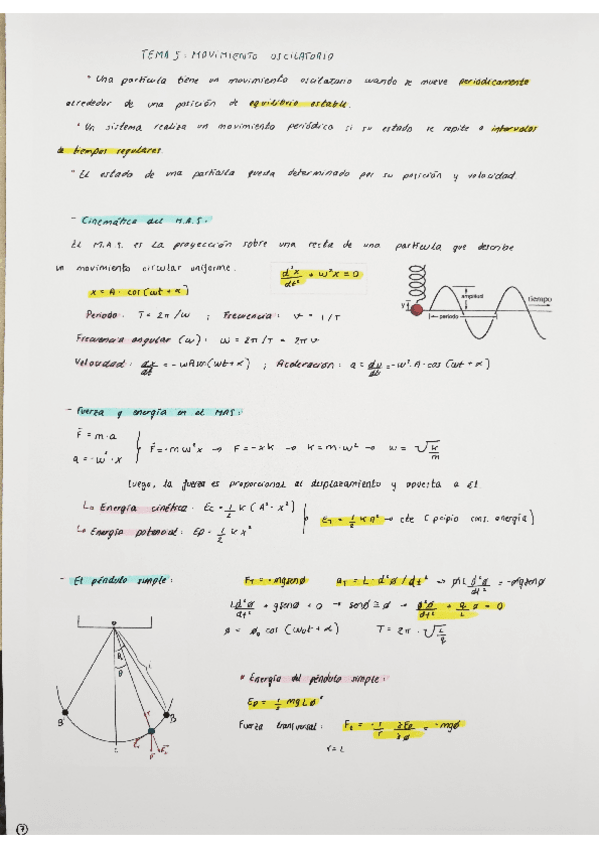 TEMA 5: MOVIMIENTO OSCILATORIO
* Una partícula tiene un movimiento oscilatorio cuando se mueve periodicamente
alrededor de una posición de equilibrio estable.
* Un sistema realiza un movimiento periódico si su estado se repite a intervalos
de tiempos regulares.
* El estado de una partícula queda determinado por su posición y velocidad
- Cinemática del M.A.S.:
El M.A.S. es la proyección sobre una recta de una partícula que describe
un movimiento circular uniforme. d²x/dt² + w²x = 0
x = A · cos (wt + α)
amplitud
tiempo
y
periodo
Periodo: T = 2π/w ; Frecuencia: ν = 1/T
Frecuencia angular (w): w = 2π/T = 2πν
Velocidad: dx/dt = -wA sen(wt + α) ; Aceleración: a = dv/dt = -w² · A · cos (wt + α)
- Fuerza y energía en el MAS:
F = m · a
a = -w² · x
F = -mw²x → F = -xk → K = m · w² → w = √(K/m)
Luego, la fuerza es proporcional al desplazamiento y opuesta a él.
↳ Energía cinética: Ec = 1/2 K (A² - x²)
↳ Energía potencial: Ep = 1/2 K x²
ET = 1/2 K A² → cte (pcipio cons. energía)
- El péndulo simple:
FT = -mg senø aT = L · d²ø/dt² → mL d²ø/dt² = -mg senø
L d²ø/dt² + g senø = 0 → senø ≅ ø → d²ø/dt² + g/L ø = 0
ø = ø₀ cos (w₀t + α) T = 2π · √(L/g)
* Energía del péndulo simple:
Ep = 1/2 mgLø²
Fuerza transversal: Ft = -1/r ∂Ep/∂ø = -mgø
r = L
B'
B
7